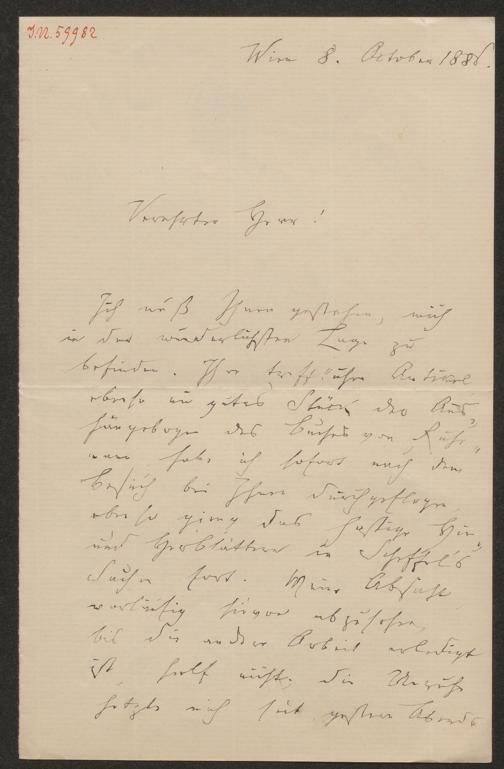 J.N. 59982
Wien 8. October 1886.
Verehrter Herr!
Ich muß Ihnen gestehen, mich
in der wunderlichsten Lage zu
befinden. Ihr trefflicher Artikel
ebenso ein gutes Stück der Aus-
hängebogen des Buches von Ruhe-
mann habe ich sofort nach dem
Besuch bei Ihnen durchgeflogen,
ebenso ging das hastige Hin-
und Herblättern in Scheffel's
Sachen fort. Meine Absicht,
vorläufig hievon abzusehen,
bis die andere Arbeit erledigt
ist, half nicht, die Unruhe
hetzte mich seit gestern Abends